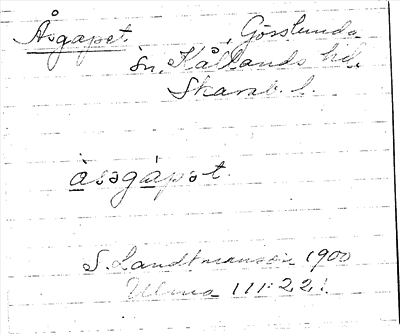 Åsgapet, Gösslunda
sn, Kållands hd.
Skarab. l.
àssgápət.
S. Landtmanson 1900
Ulma 111:221.